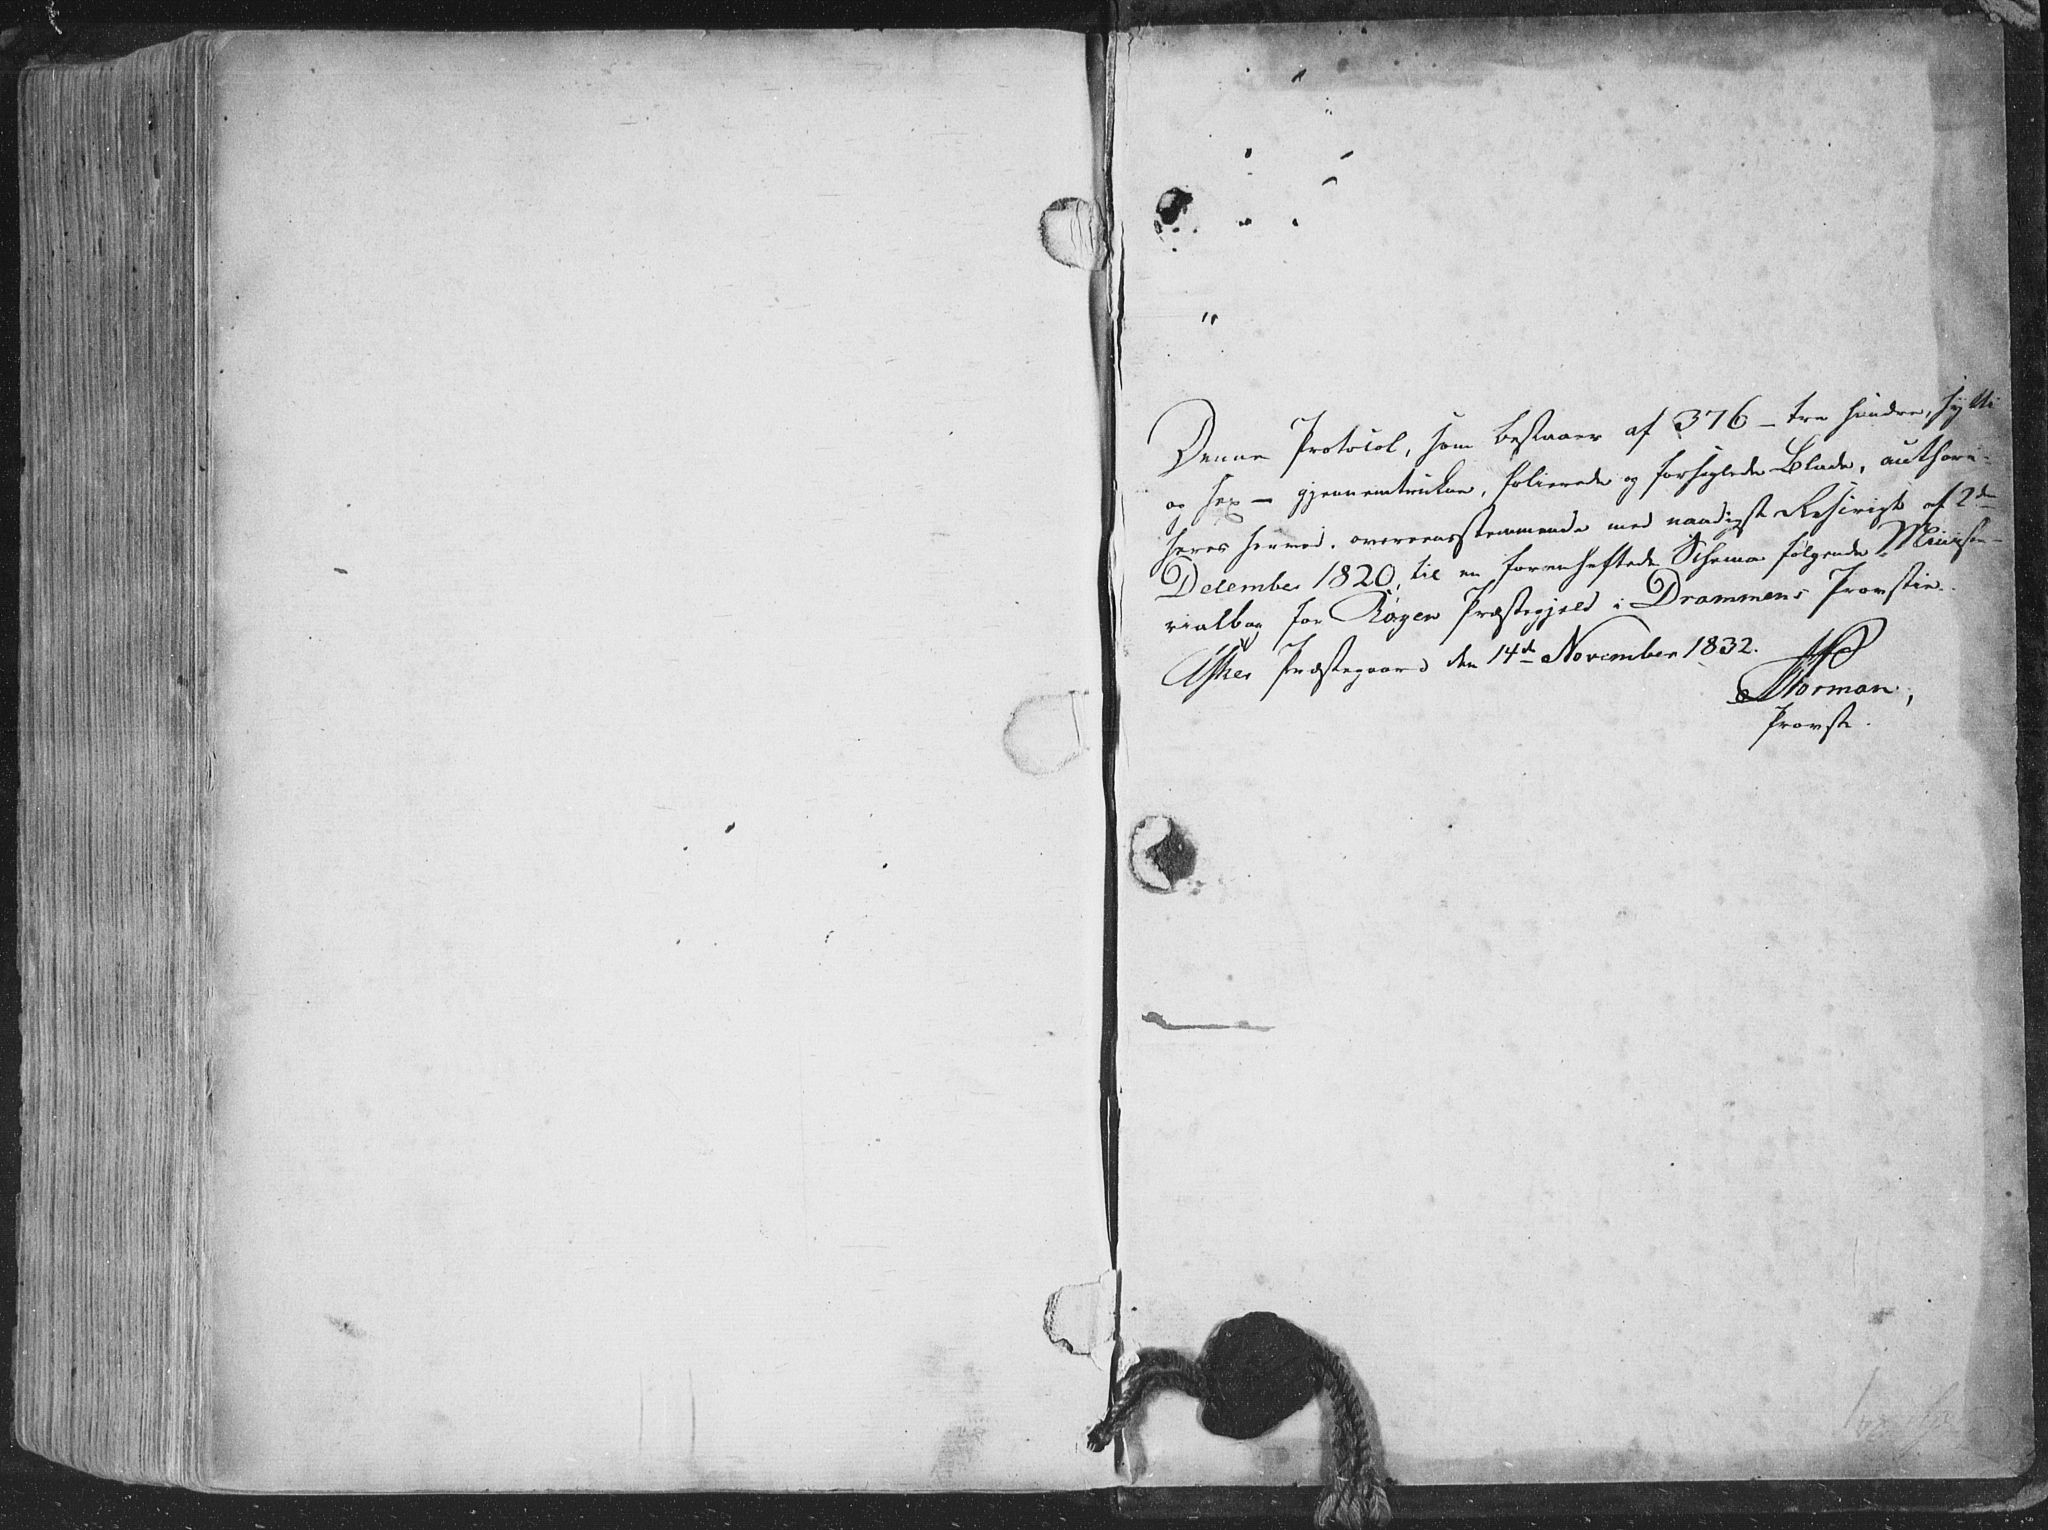 Denne Protocol, som bestaaer af 376 – tre hundre, sytti
og sex – gjennemtrukne, folierede og forseglede Blade, authori-
seres herved, overeensstemmende med naadigst Rescript af 2de
December 1820, til en foranheftede Schema følgende Ministe-
rialbog for Røgen Præstegjeld i Drammens Provstie.
Asker Præstegaard den 14de November 1832.
Norman,
Provst.